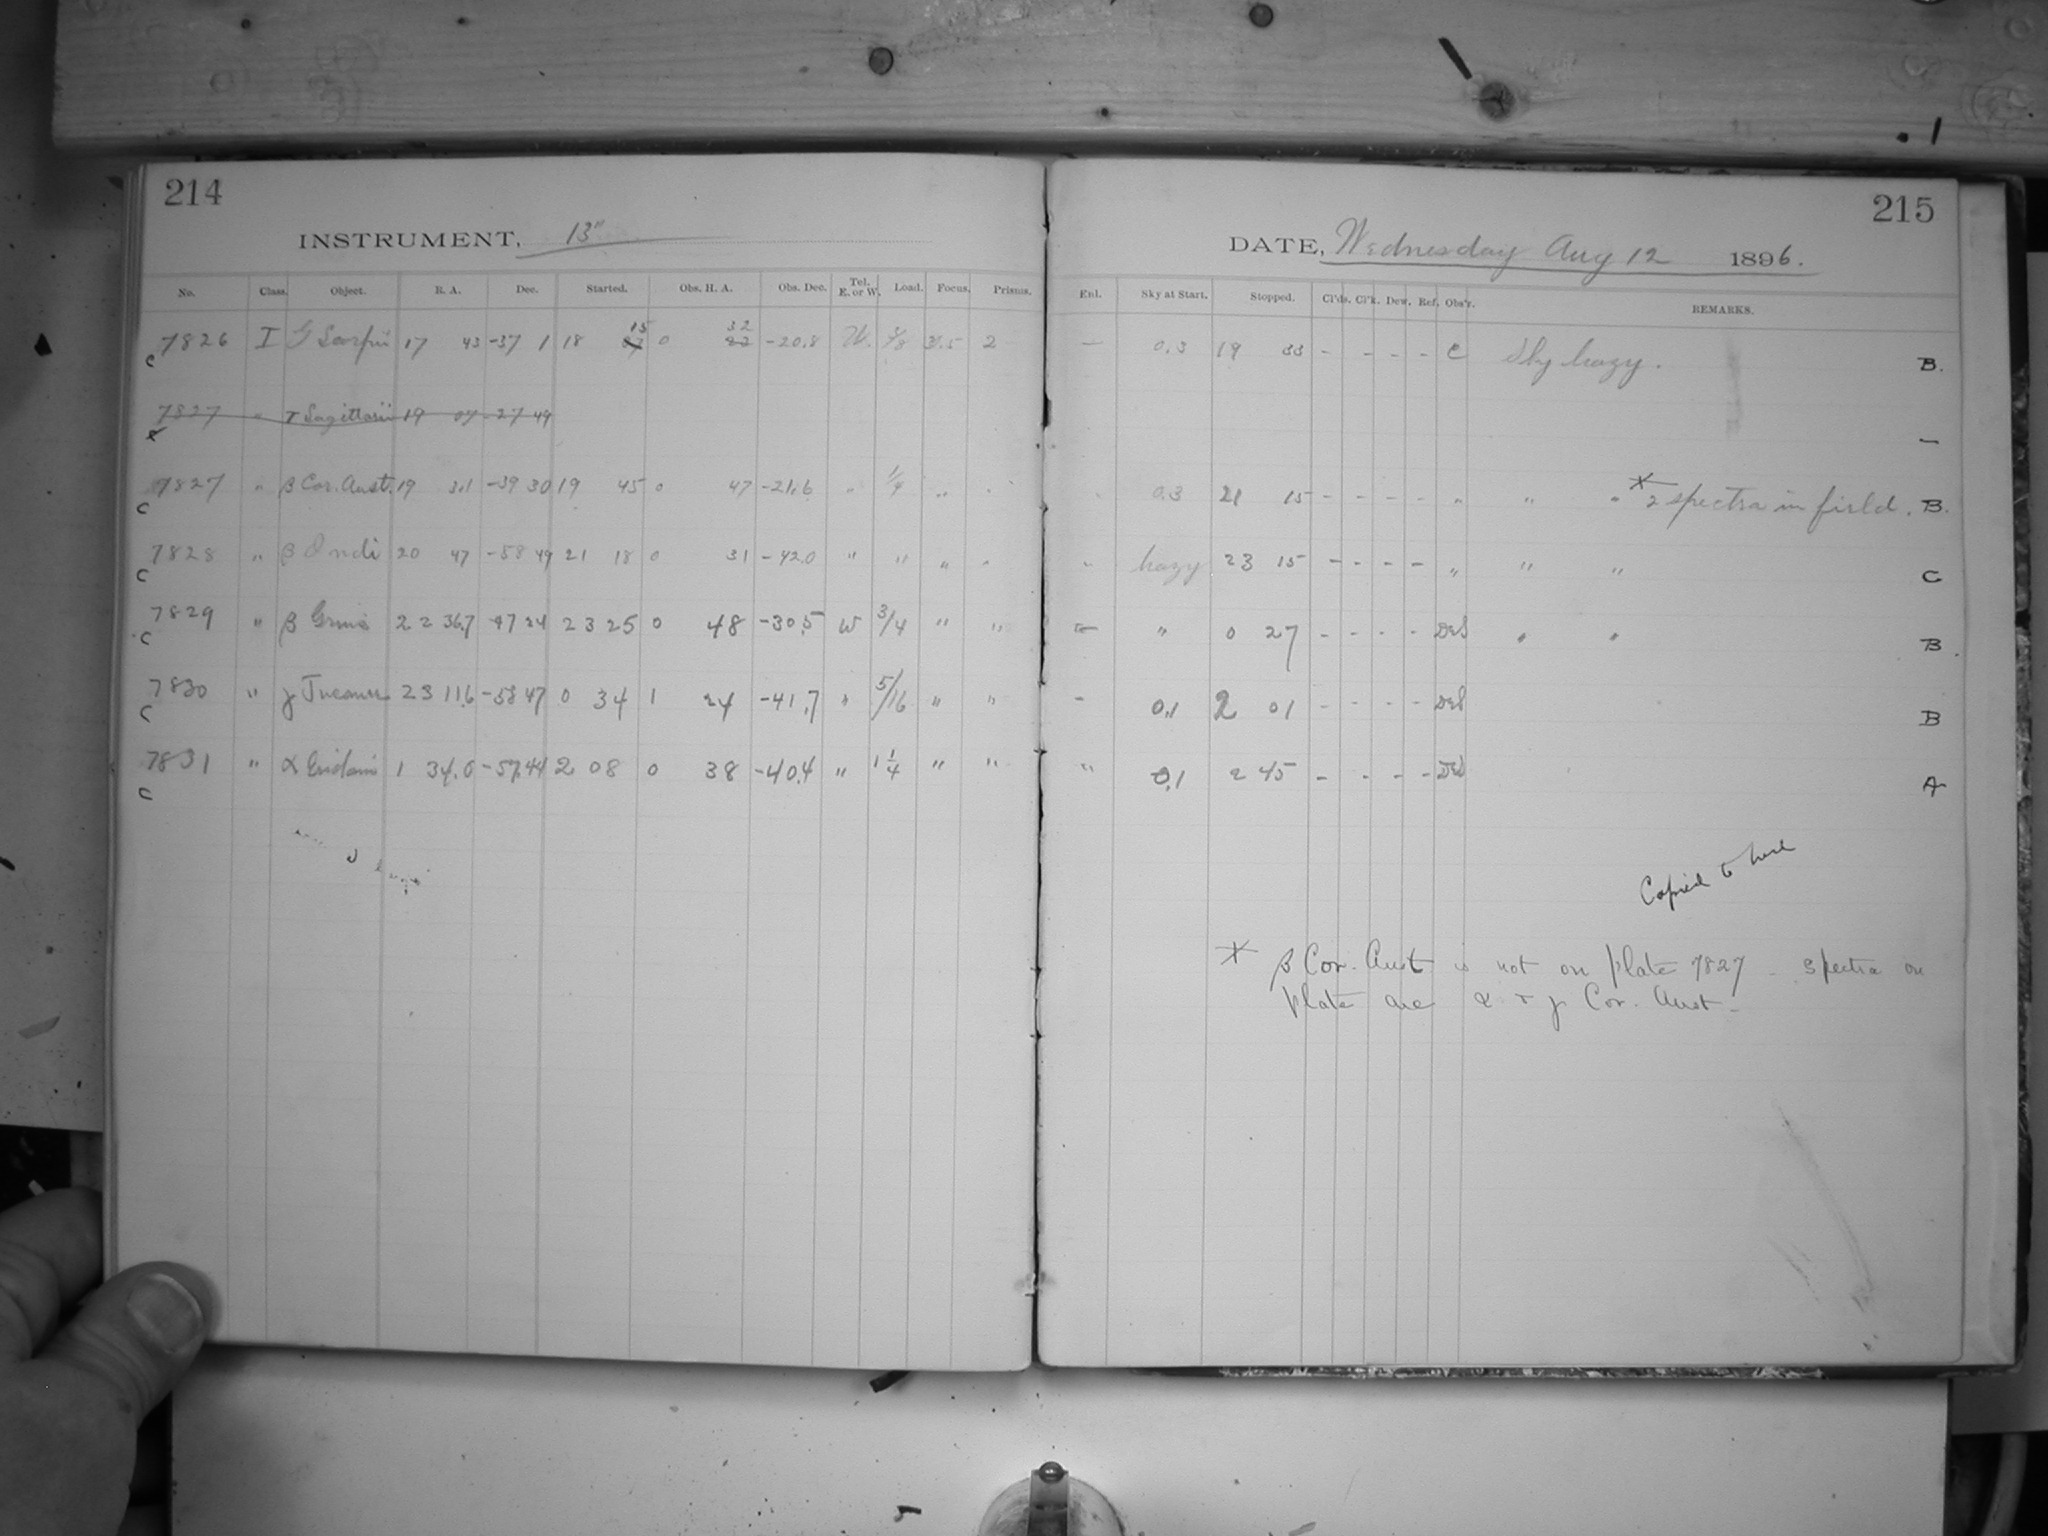 214
INSTRUMENT, 13"
No. Class. Object. R. A. Dec. Started. Obs. H. A. Obs. Dec. Tel. E. or W. Load. Focus. Prisms.
7826 I G Scorpii 17 43 -37 1 18 15 0 32 -20.8 W. 3.5 2
C
7827 " τ Sagittarii 19 07 -27 49
7827 " β Cor. Aust. 19 3.1 -39 30 19 45 0 47 -21.6 " 1/4 " "
C
7828 " β Indi 20 47 -58 49 21 18 0 31 -42.0 " " " "
C
7829 " β Gruis 22 36.7 -47 24 23 25 0 48 -30.5 W 3/4 " "
C
7830 " γ Tucanae 23 11.6 -58 47 0 34 1 24 -41.7 " 5/16 " "
C
7831 " α Eridani 1 34.0 -57.44 2 08 0 38 -40.4 " 1 1/4 " "
C
215
DATE, Wednesday Aug 12 1896.
Enl. Sky at Start. Stopped. Cl'ds. Cl'k. Dew. Ref. Obs'r. REMARKS.
- 0.3 19 33 - - - - C Sky hazy. B.
-
" 0.3 21 15 - - - - " " " * 2 spectra in field. B.
" hazy 23 15 - - - - " " " C
- " 0 27 - - - - DeS " " B.
- 0.1 2 01 - - - - DeS B
" 0.1 2 45 - - - - DeS A
Copied to here
* β Cor. Aust is not on plate 7827 - spectra on
plate are α + γ Cor. Aust -